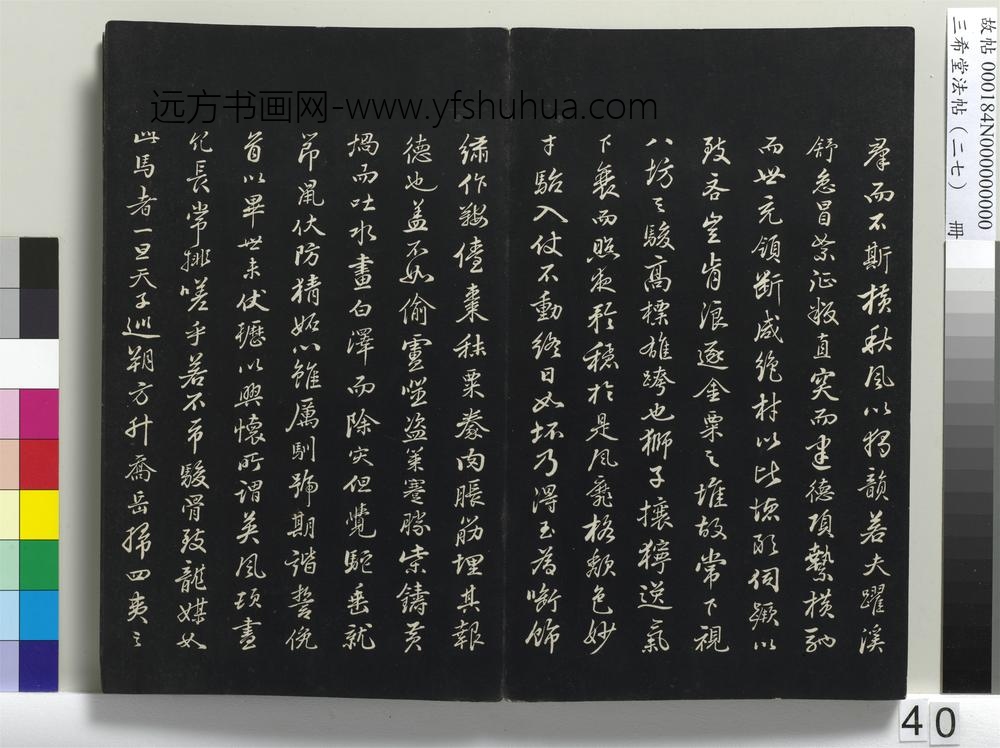 羣而不斯橫秋風以獨韻若夫躍溪
舒急冒絮征叛直突而建德項縶橫馳
而世充領斷咸絕材以比德敢伺蹶以
致吝豈肯浪逐金粟之堆故常下視
八坊之駿高標雄跨也獅子攘獰逸氣
下衰而照夜矜穩於是風靡格頹色妙
才駘入仗不動終日如坯乃得玉為銜飾
繡作鞍儓棗秣粟豢肉脹筋埋其報
德也蓋不如偷盧噬盜策蹇勝柴鑄黃
蝸而吐水畫白澤而除灾但覺駝垂就
節鼠伏防猜妬心雖厲馴號期諧誓俛
首以畢世未伏櫪以興懷所謂英風頓盡
冗長常排嗟乎若不市駿骨致龍媒如
此馬者一旦天子巡朔方升喬岳掃四夷之
远方书画网-www.yfshuhua.com
故帖 000184N000000000
三希堂法帖(二七) 冊
40